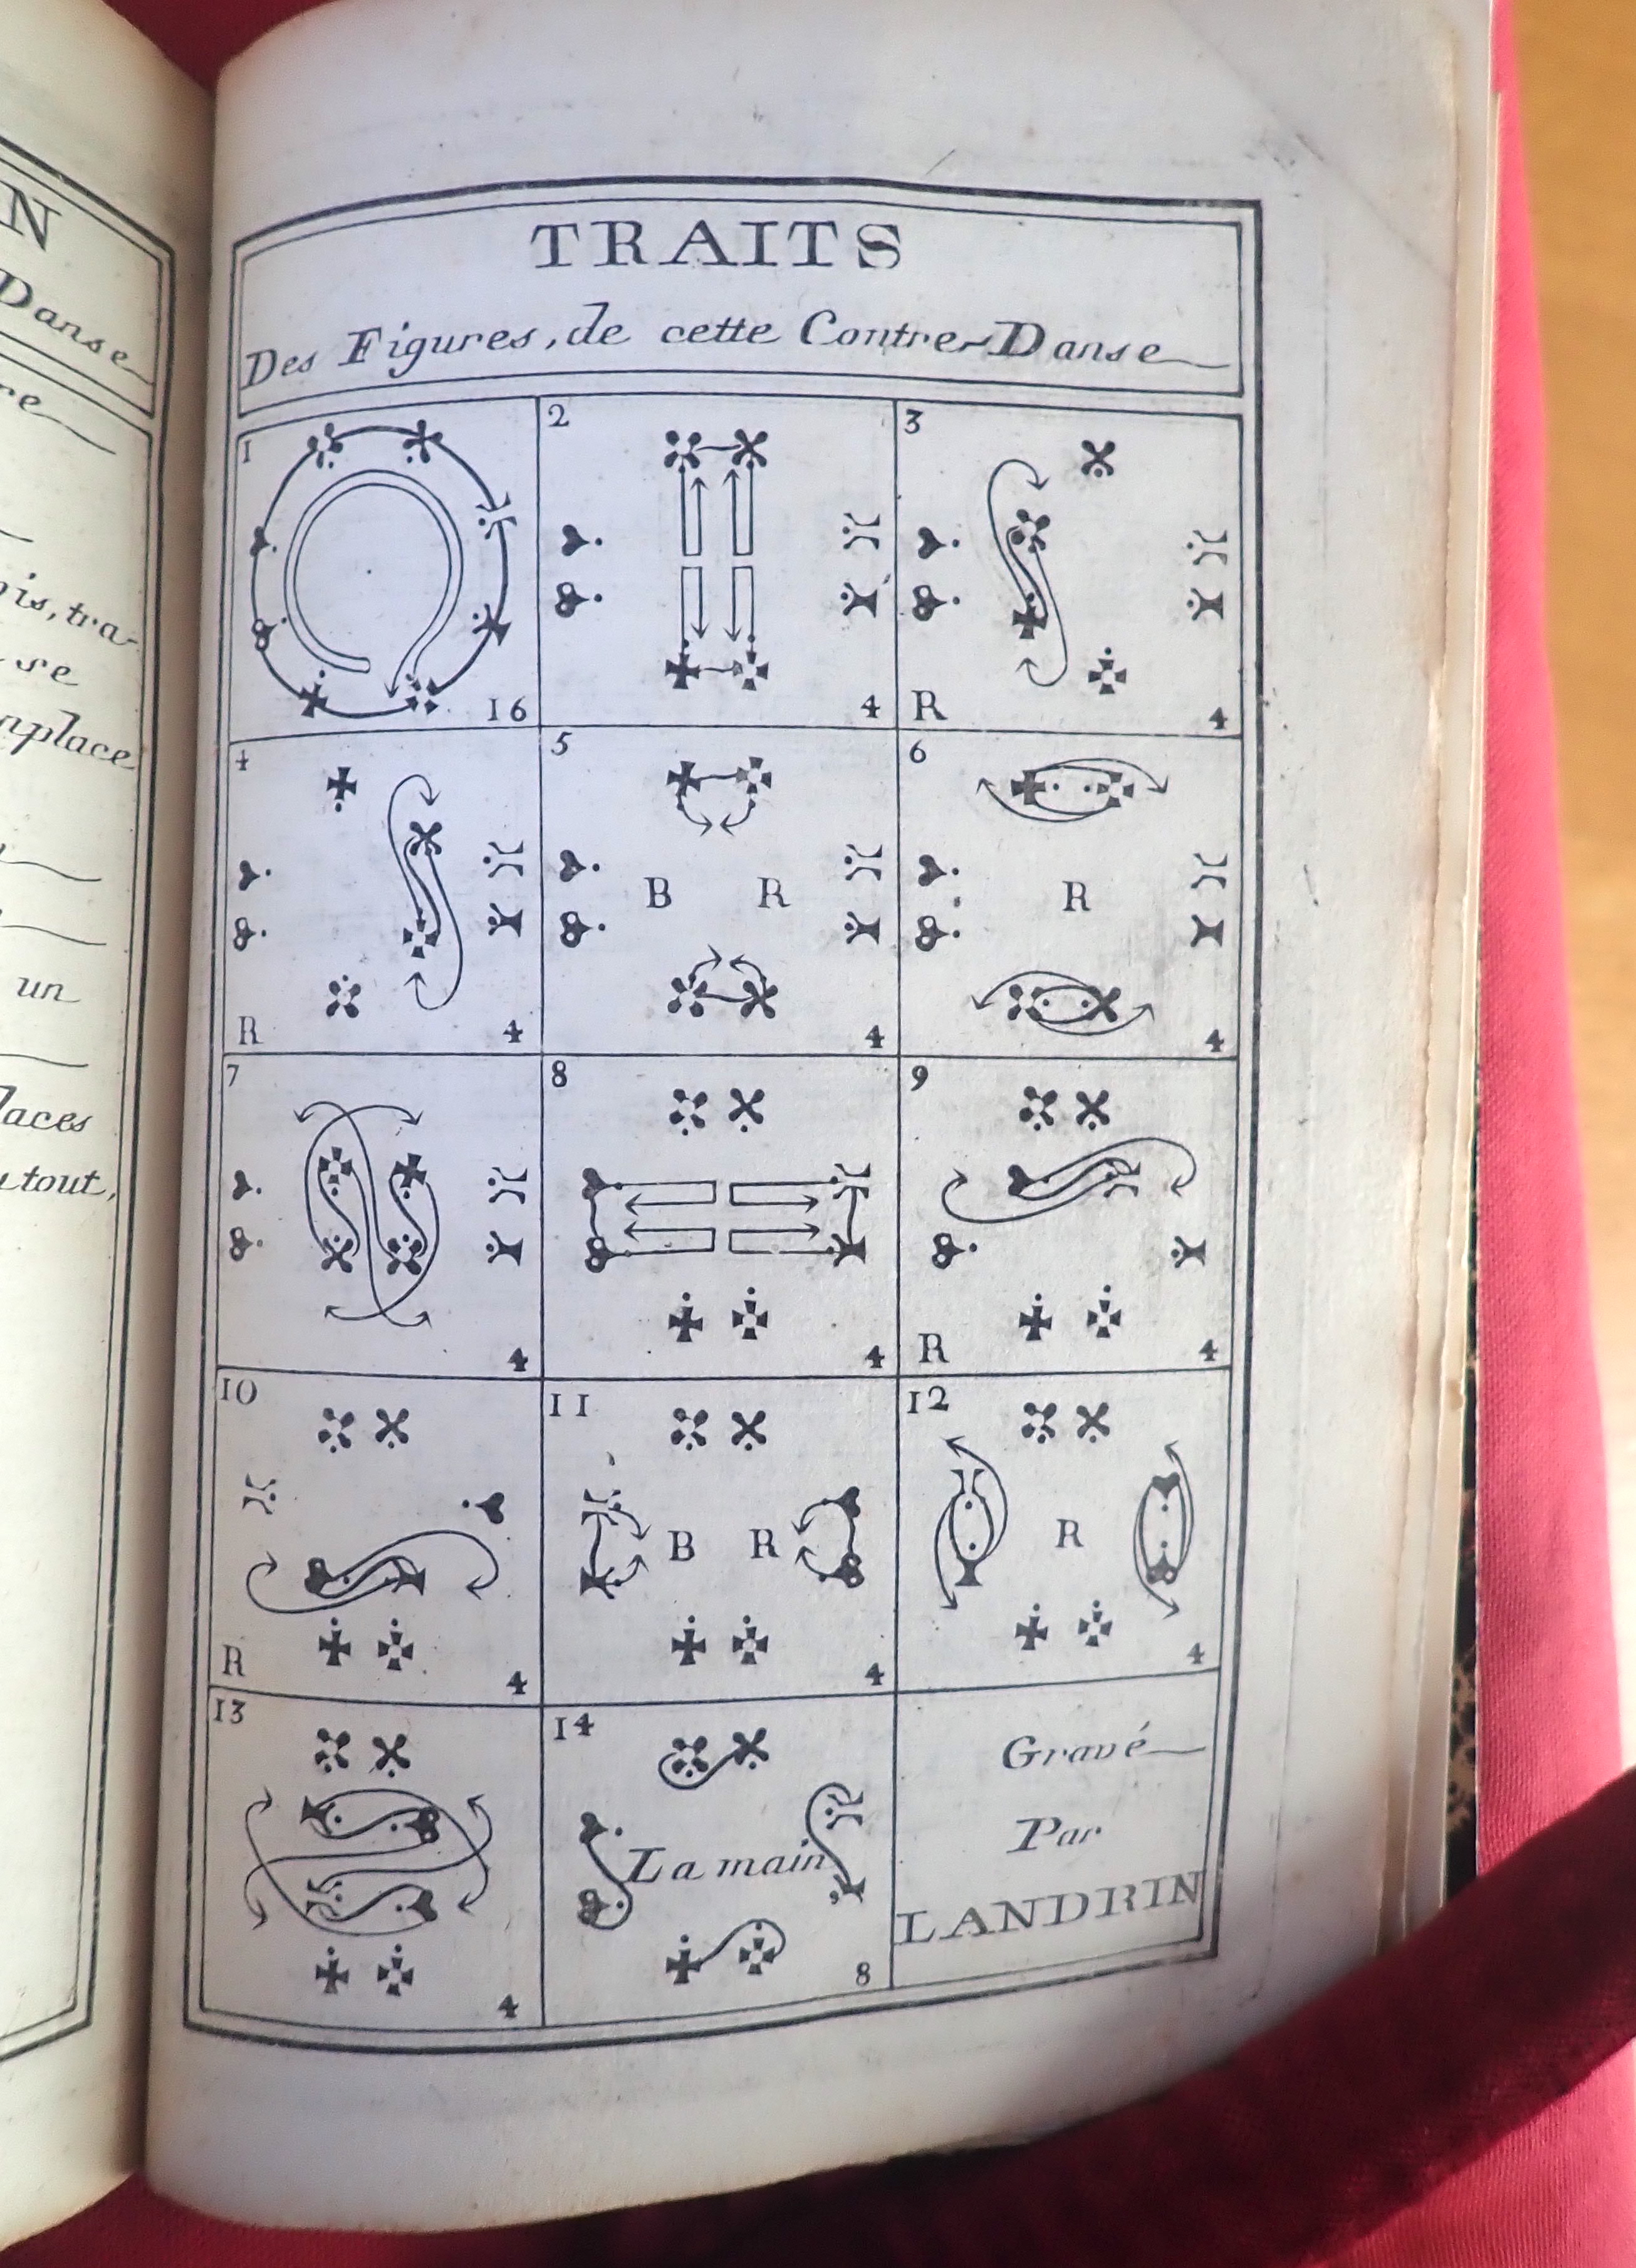 N
Danse
re
is, tra-
se
nplace
un
laces
tout,
TRAITS
Des Figures, de cette Contre-Danse
1
16
2
4
3
R
4
4
R
4
5
B R
4
6
R
4
7
4
8
4
9
R
4
10
R
4
11
B R
4
12
R
4
13
4
14
La main
8
Gravé
Par
LANDRIN